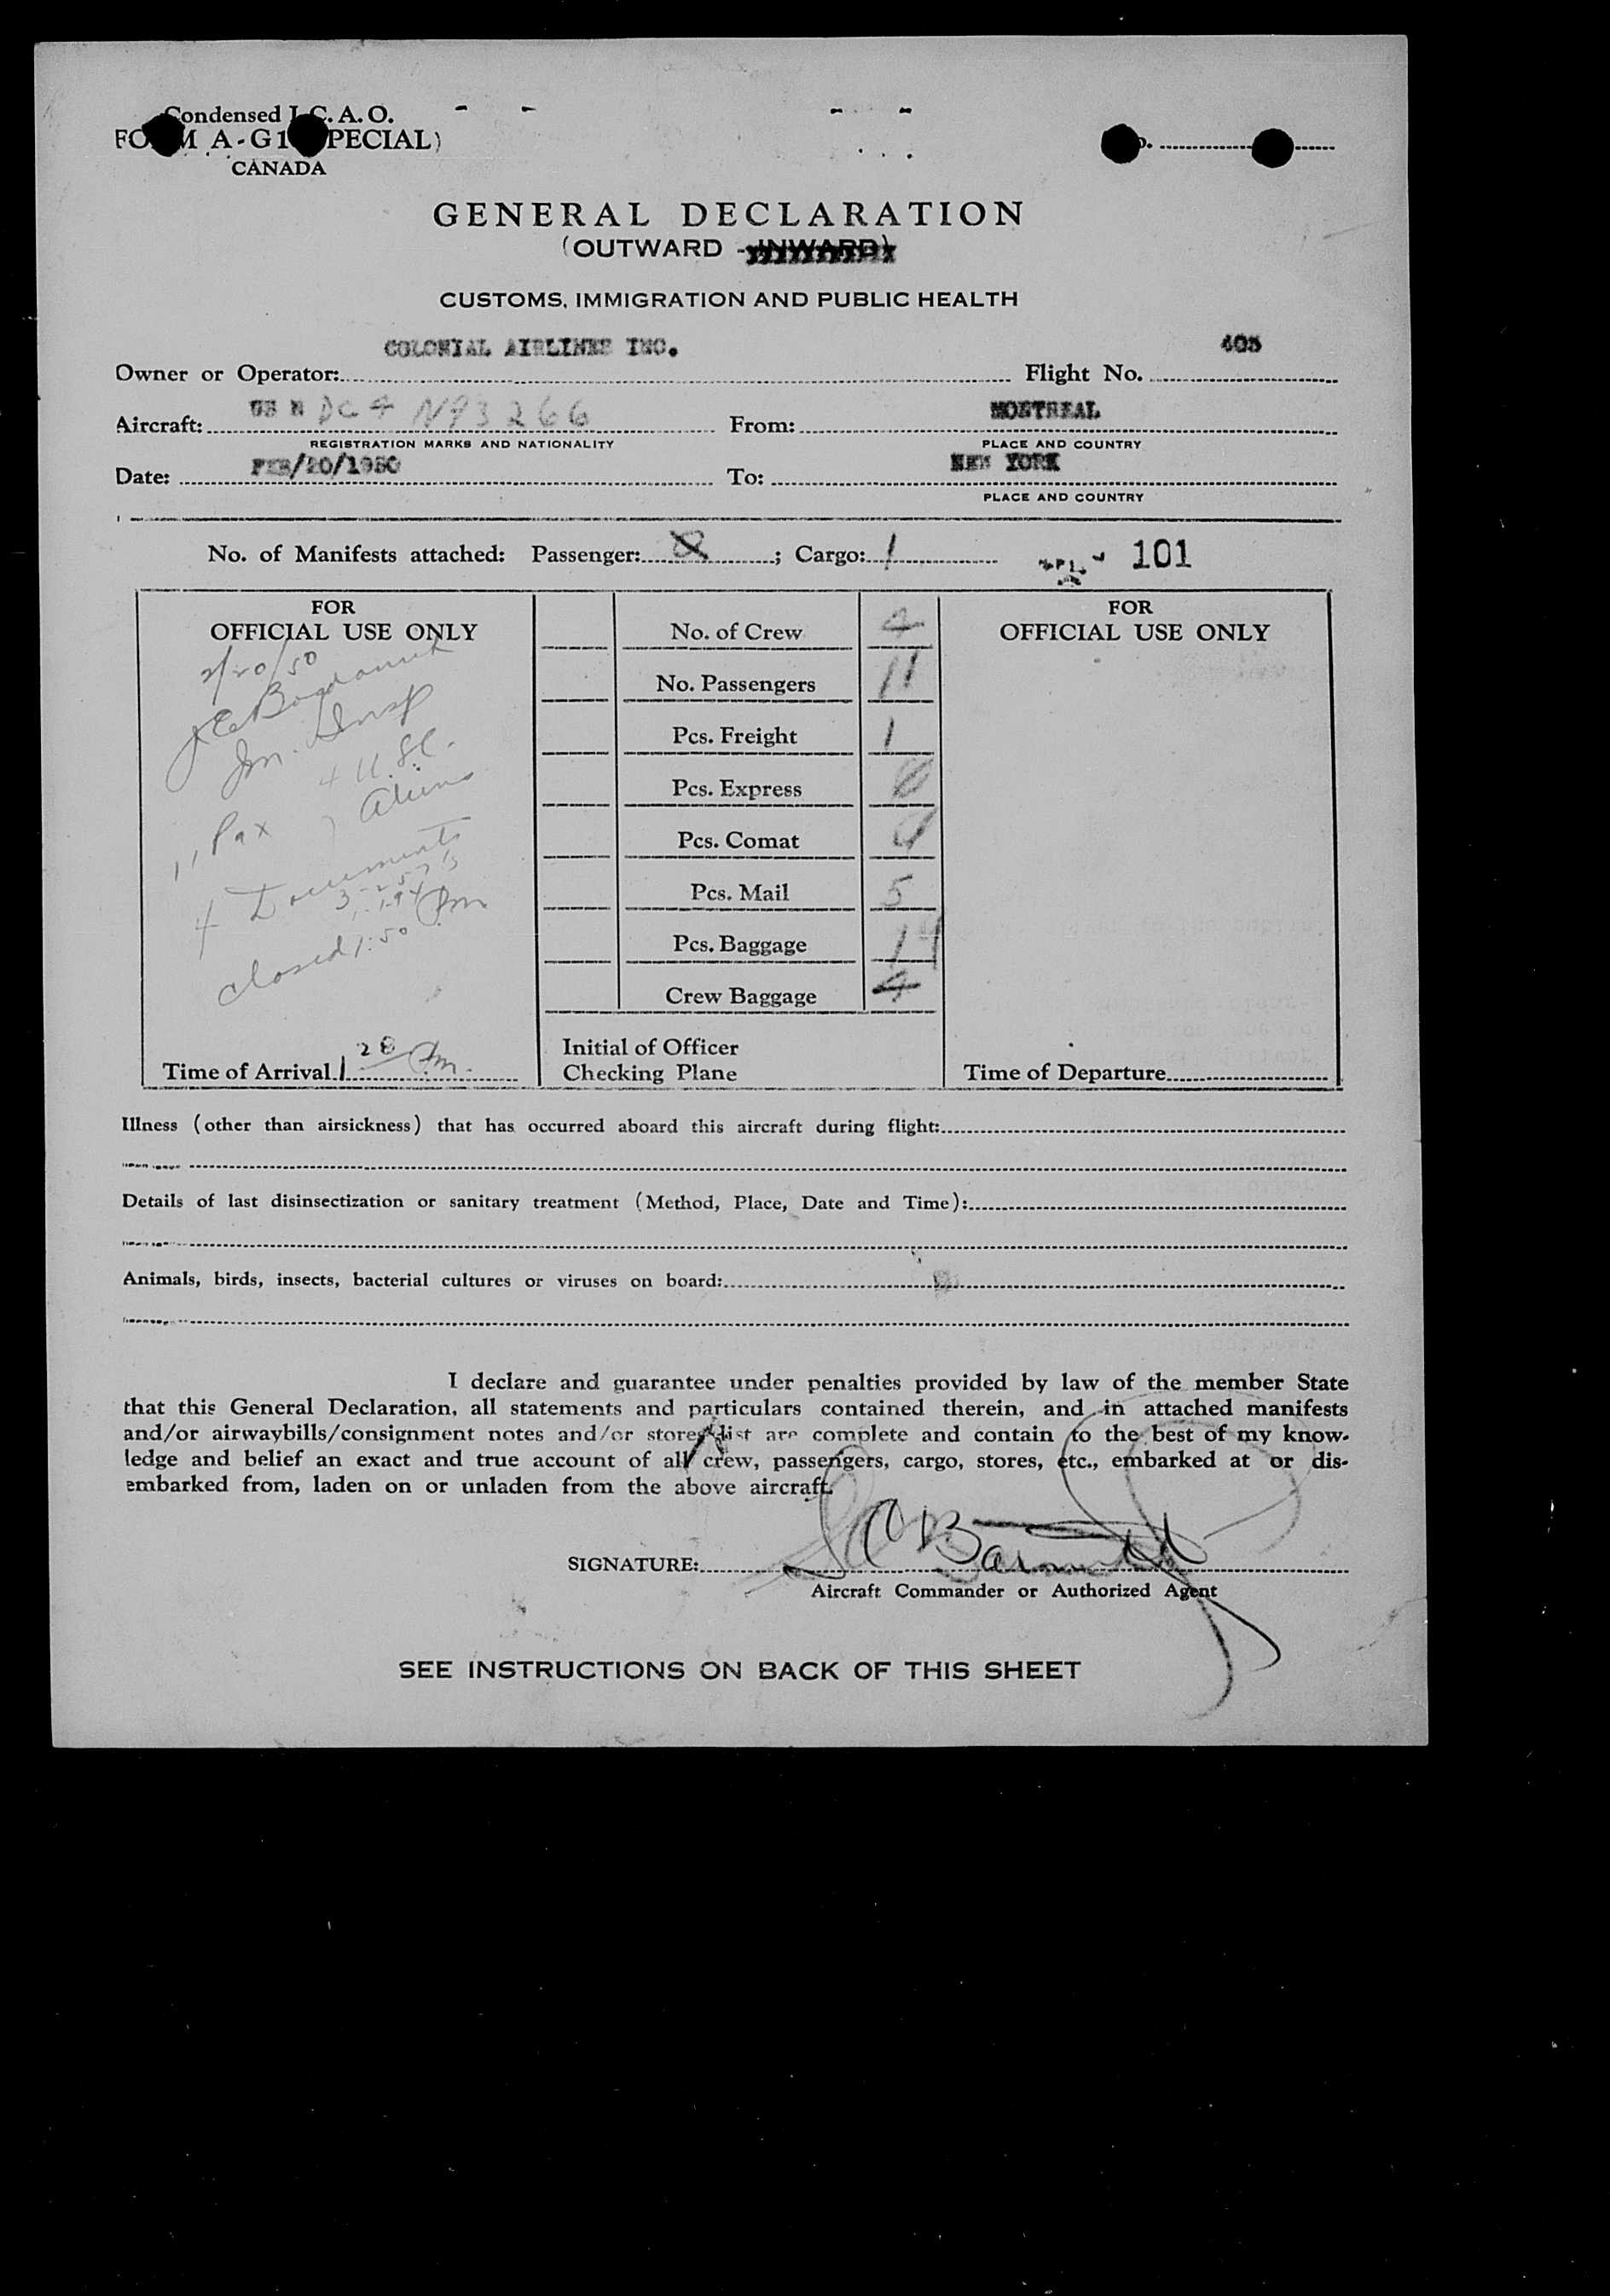 Condensed I. C. A. O.
FORM A-G1 (SPECIAL)
CANADA
GENERAL DECLARATION
(OUTWARD - INWARD)
CUSTOMS, IMMIGRATION AND PUBLIC HEALTH
COLONIAL AIRLINES INC.
405
Owner or Operator: Flight No.
US N DC 4 N93266
MONTREAL
Aircraft: From:
REGISTRATION MARKS AND NATIONALITY PLACE AND COUNTRY
FEB/20/1950
NEW YORK
Date: To:
PLACE AND COUNTRY
No. of Manifests attached: Passenger: ; Cargo: 1 101
FOR
OFFICIAL USE ONLY
2/20/50
Im. Insp
4 U.S.C.
11 Pax 7 Aliens
4 Documents
closed 1:50 Pm
Time of Arrival 1 20 Pm.
No. of Crew 4
No. Passengers 11
Pcs. Freight 1
Pcs. Express 0
Pcs. Comat 0
Pcs. Mail 5
Pcs. Baggage 14
Crew Baggage 4
Initial of Officer
Checking Plane
FOR
OFFICIAL USE ONLY
Time of Departure
Illness (other than airsickness) that has occurred aboard this aircraft during flight:
Details of last disinsectization or sanitary treatment (Method, Place, Date and Time):
Animals, birds, insects, bacterial cultures or viruses on board:
I declare and guarantee under penalties provided by law of the member State
that this General Declaration, all statements and particulars contained therein, and in attached manifests
and/or airwaybills/consignment notes and/or stores list are complete and contain to the best of my know-
ledge and belief an exact and true account of all crew, passengers, cargo, stores, etc., embarked at or dis-
embarked from, laden on or unladen from the above aircraft.
SIGNATURE:
Aircraft Commander or Authorized Agent
SEE INSTRUCTIONS ON BACK OF THIS SHEET